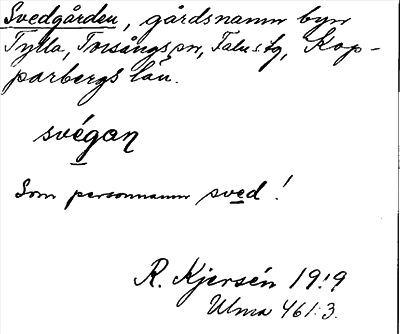 Svedgården, gårdsnamn byn
Tylla, Torsångs sn, Falu stg, Kop-
parbergs län.
svégaɳ
Som personnamn sved!
R. Kjersén 1919
Ulma 461:3.